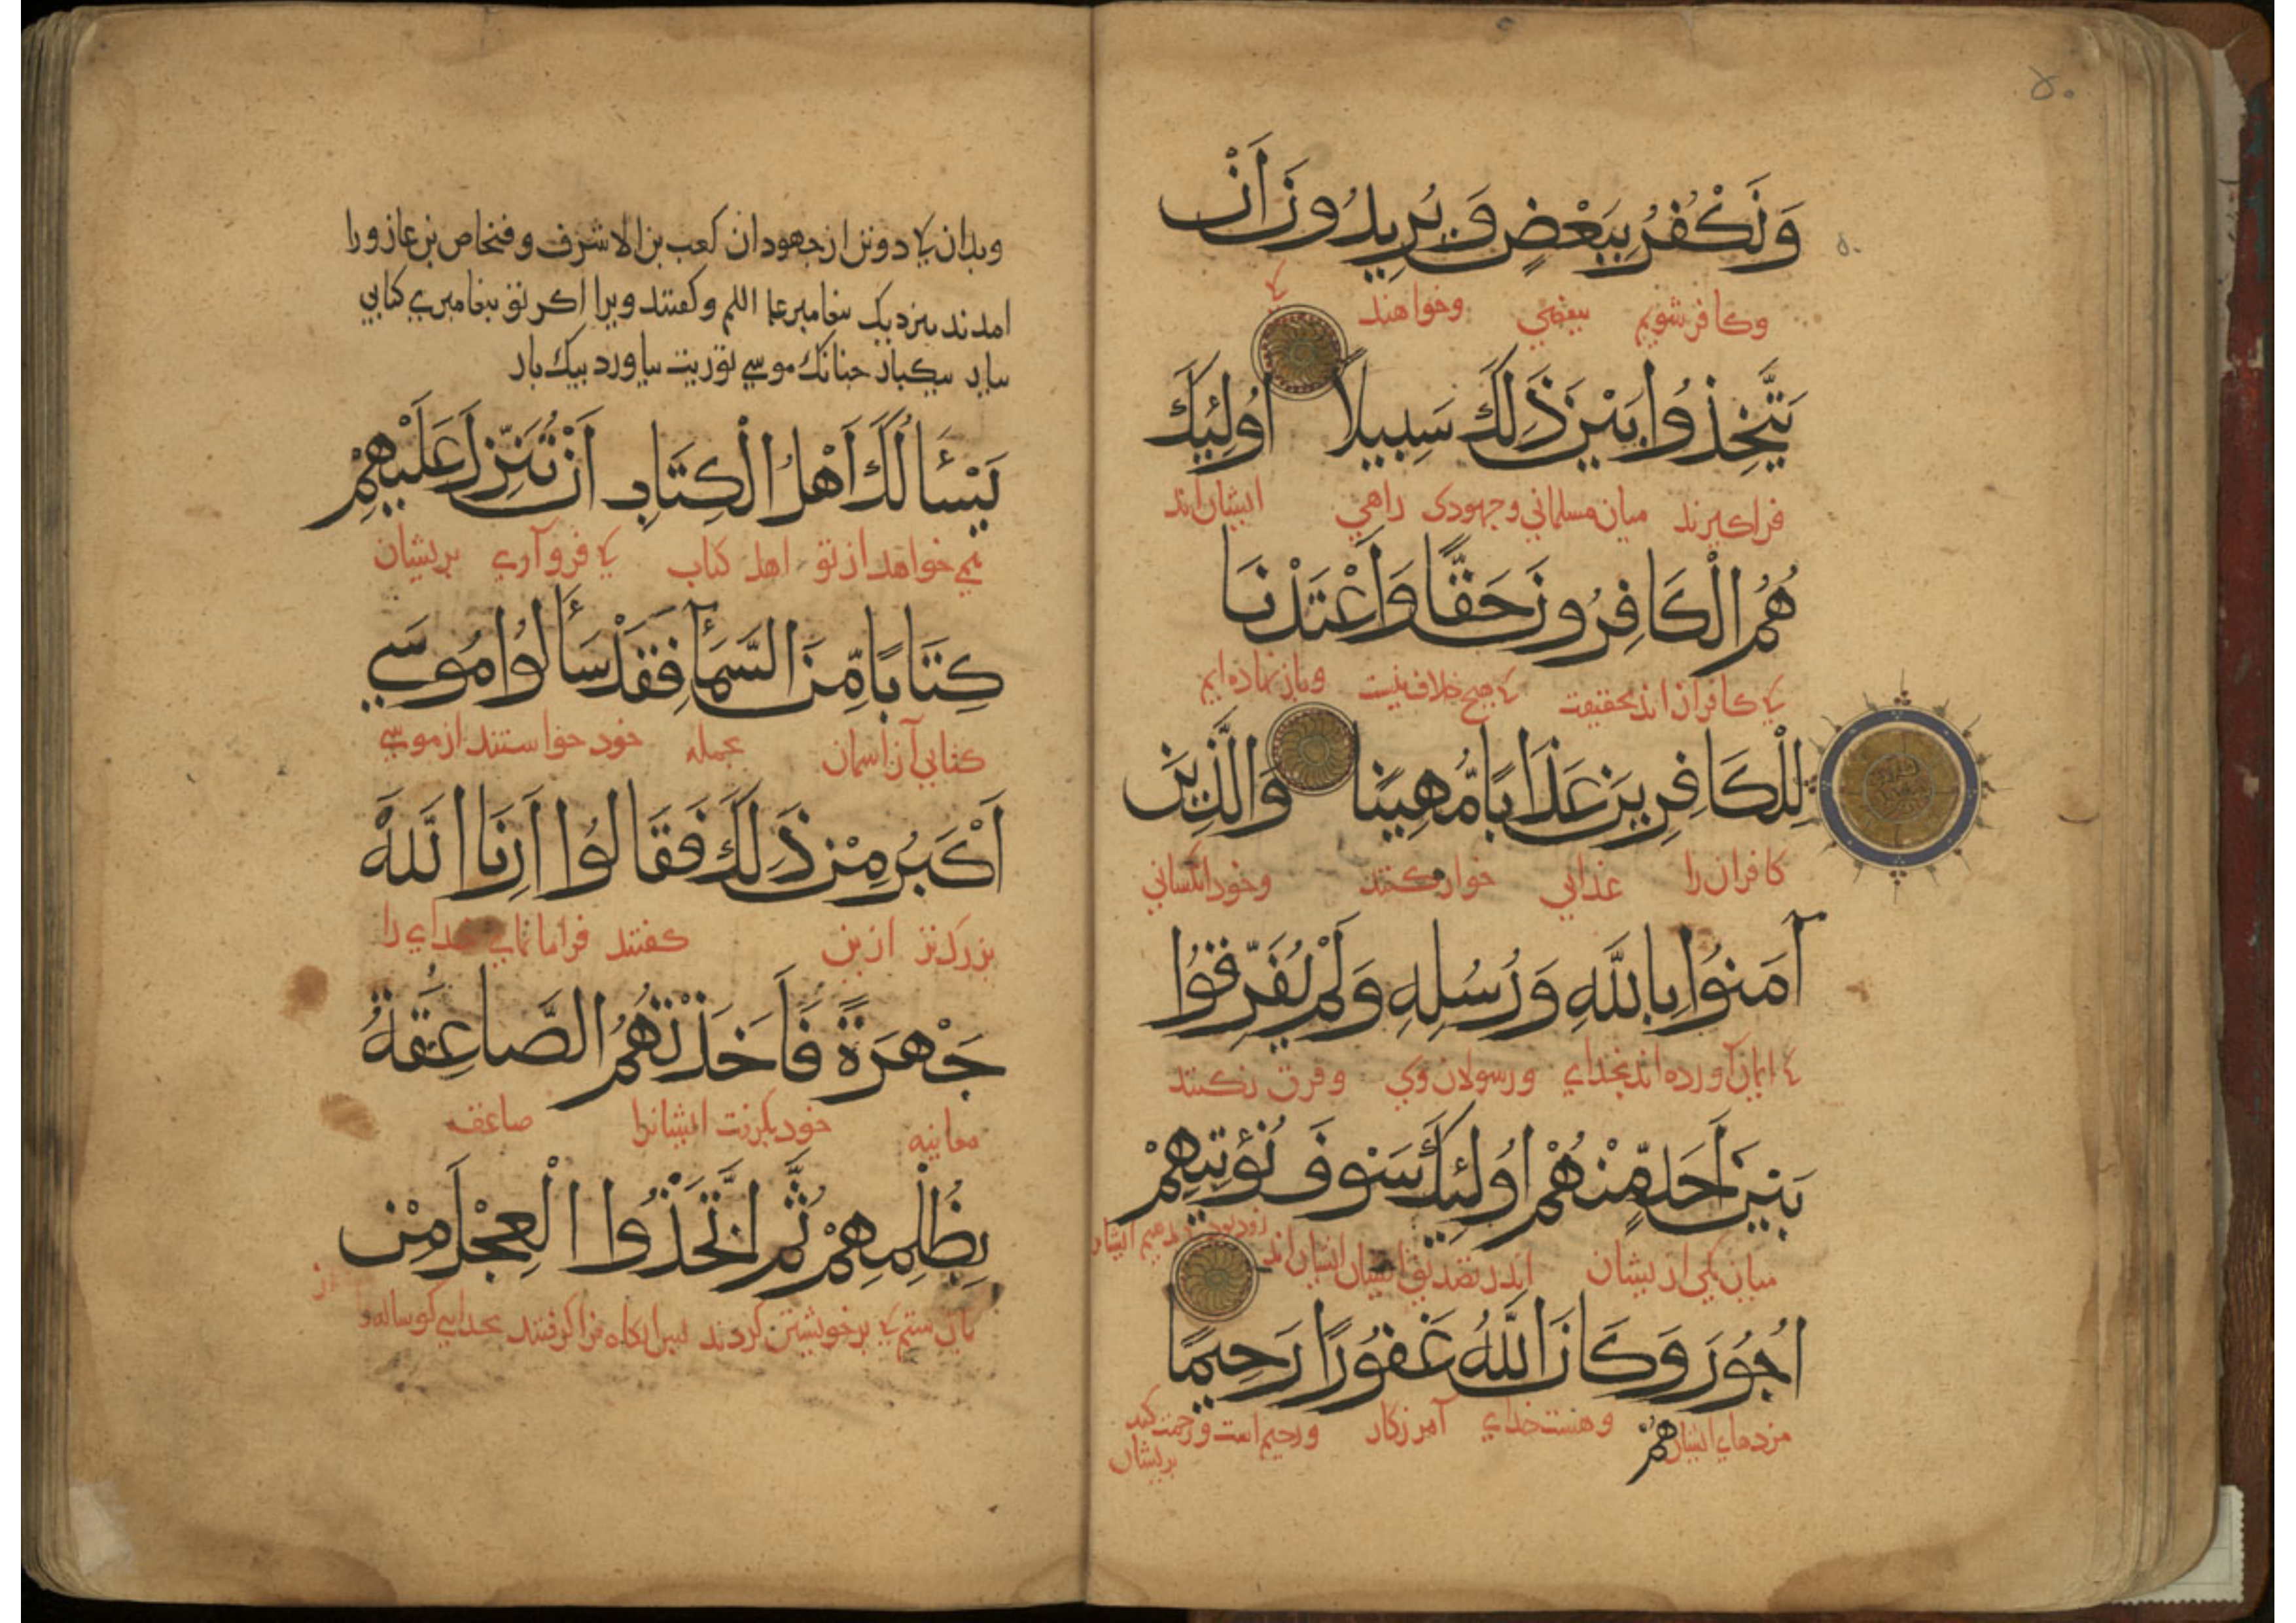 ۵۰
وَنَكْفُرُ بِبَعْضٍ وَيُرِيدُونَ اَنْ
وكافر شويم ببعضي وخواهند كه
يَتَّخِذُوا بَيْنَ ذَلِكَ سَبِيلًا اُولئِكَ
فراكيرند ميان مسلماني وجهودى راهي ايشان اند
هُمُ الْكَافِرُونَ حَقًّا وَاَعْتَدْنَا
كه كافران اند بحقيقت كه هيچ خلاف نيست
لِلْكَافِرِينَ عَذَابًا مُّهِينًا وَالَّذِينَ
كافران را عذابي خوار كننده وخود انكساني
آمَنُوا بِاللَّهِ وَرُسُلِهِ وَلَمْ يُفَرِّقُوا
كه ايمان آورده اند بخداي ورسولان وى وفرق نكنند
بَيْنَ اَحَدٍ مِّنْهُمْ اُولئِكَ سَوْفَ نُؤْتِيهِمْ
ميان يكي از يشان اندر تصديق ايشان ايشان اند
اُجُورَهُمْ وَكَانَ اللَّهُ غَفُورًا رَحِيمًا
مزدهاء ايشان وهست خداي آمرزكار ورحيم است ورحمت كند
بريشان
وبدان كه دو تن از جهودان كعب بن الاشرف وفنخاص بن عازورا
امدند بنزديك بيغامبر وكفتند ويرا اكر تو بيغامبري كتابي
بيار بيكبار چنانك موسي توريت بياورد بيك بار
يَسْأَلُكَ اَهْلُ الْكِتَابِ اَنْ تُنَزِّلَ عَلَيْهِمْ
مي خواهد از تو اهل كتاب كه فرو آري بريشان
كِتَابًا مِّنَ السَّمَآءِ فَقَدْ سَأَلُوا مُوسَي
كتابي از آسمان بجمله خود خواستند از موسي
اَكْبَرَ مِنْ ذَلِكَ فَقَالُوا اَرِنَا اللَّهَ
بزركتر از ين كفتند فراما نماي خداي را
جَهْرَةً فَاَخَذَتْهُمُ الصَّاعِقَةُ
معاينه خود بكرفت ايشانرا صاعقه
بِظُلْمِهِمْ ثُمَّ اتَّخَذُوا الْعِجْلَ مِنْ
بان ستم كه بر خويشتن كردند فرا كرفتند بخدايي كوساله از